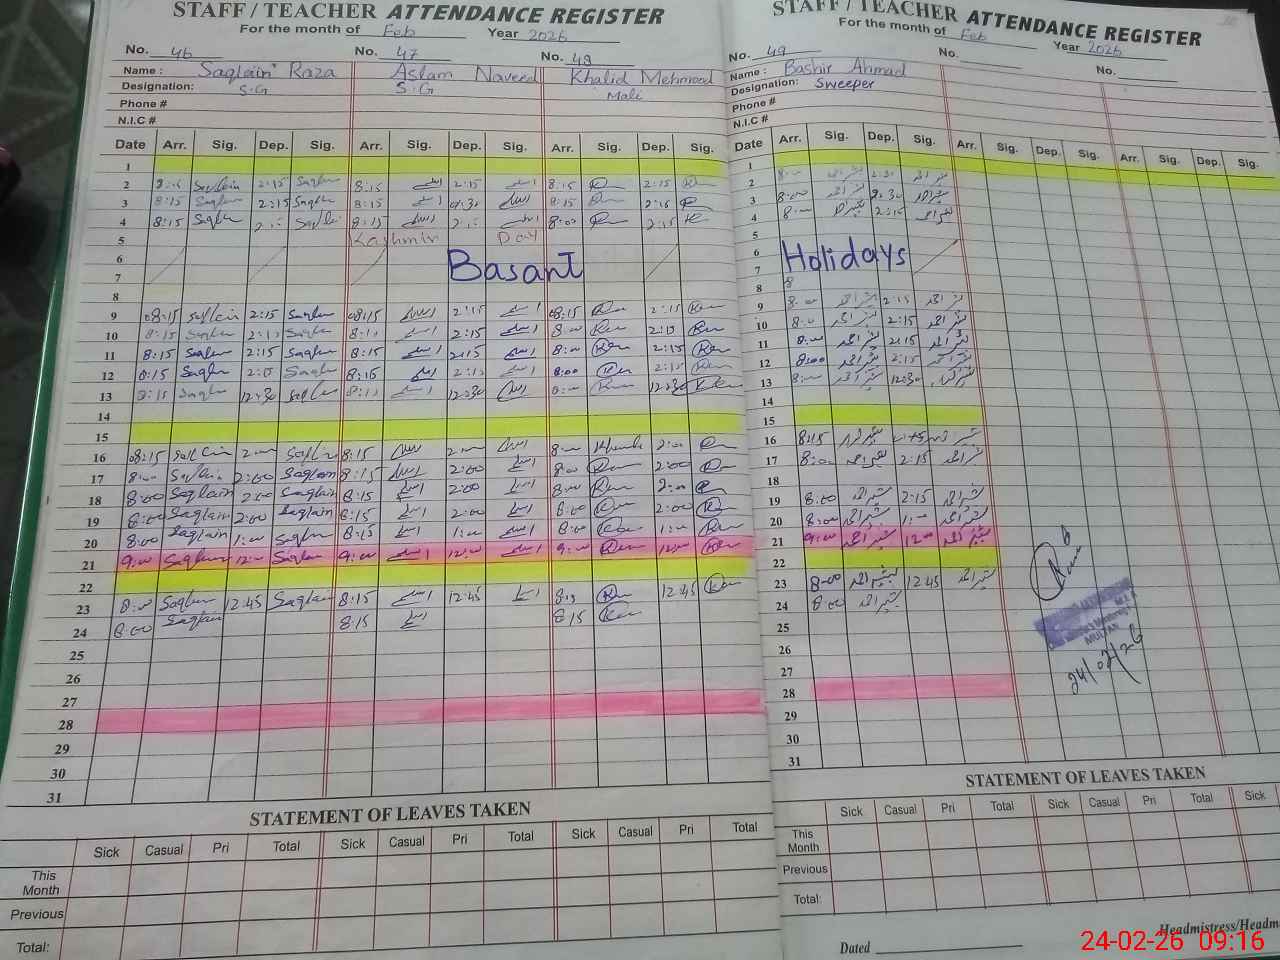 STAFF / TEACHER ATTENDANCE REGISTER
For the month of Feb Year 2026
No. 46 No. 47 No. 48
Name : Saqlain Raza Aslam Naveed Khalid Mehmood
Designation: S.G S.G Mali
Phone #
N.I.C #
Date Arr. Sig. Dep. Sig. Arr. Sig. Dep. Sig. Arr. Sig. Dep. Sig.
1
2 Saqlain 2:15 Saqlain 8:15 2:15 8:15 2:15
3 8:15 Saqlain 2:15 Saqlain 8:15 8:15 2:15
4 8:15 Saqlain 8:15 8:00 2:15
5 Kashmir Day
6 Basant
7
8
9 08:15 Saqlain 2:15 Saqlain 08:15 2:15 08:15 2:15
10 8:15 Saqlain 2:15 Saqlain 2:15 8:00 2:15
11 8:15 Saqlain 2:15 Saqlain 8:15 2:15 8:00 2:15
12 8:15 Saqlain 2:15 Saqlain 8:15 2:15 8:00 2:15
13 8:15 Saqlain 12:30 Saqlain 12:30 8:00 12:30
14
15
16 08:15 Saqlain 2:00 Saqlain 8:15 2:00 8:00 2:00
17 8:00 Saqlain 2:00 Saqlain 8:15 2:00 8:00 2:00
18 8:00 Saqlain 2:00 Saqlain 8:15 2:00 8:00 2:00
19 8:00 Saqlain 2:00 Saqlain 8:15 2:00 8:00 2:00
20 8:00 Saqlain 1:00 Saqlain 8:15 1:00 8:00 1:00
21 9:00 Saqlain 12:00 Saqlain 9:00 12:00 9:00 12:00
22
23 8:00 Saqlain 12:45 Saqlain 8:15 12:45 12:45
24 8:00 Saqlain 8:15 8:15
25
26
27
28
29
30
31
STATEMENT OF LEAVES TAKEN
Sick Casual Pri Total Sick Casual Pri Total Sick Casual Pri Total
This Month
Previous
Total:
STAFF / TEACHER ATTENDANCE REGISTER
For the month of Feb Year 2026
No. 49 No. No.
Name : Bashir Ahmad
Designation: Sweeper
Phone #
N.I.C #
Date Arr. Sig. Dep. Sig. Arr. Sig. Dep. Sig. Arr. Sig. Dep. Sig.
1
2 8:00 بشیر احمد 2:30 بشیر احمد
3 8:00 بشیر احمد 2:30 بشیر احمد
4 8:00 بشیر احمد 2:15 بشیر احمد
5
6 Holidays
7
8 8
9 8:00 بشیر احمد 2:15 بشیر احمد
10 8:00 بشیر احمد 2:15 بشیر احمد
11 8:00 بشیر احمد 2:15 بشیر احمد
12 8:00 بشیر احمد 2:15 بشیر احمد
13 8:00 بشیر احمد 12:30 بشیر احمد
14
15
16 8:15 بشیر احمد بشیر احمد
17 8:00 بشیر احمد 2:15 بشیر احمد
18
19 8:00 بشیر احمد 2:15 بشیر احمد
20 8:00 بشیر احمد 1:00 بشیر احمد
21 9:00 بشیر احمد 12:00 بشیر احمد
22
23 8:00 بشیر احمد 12:45 بشیر احمد
24 8:00 بشیر احمد
25
26
27
28
29
30
31
MULTAN
24/02/26
STATEMENT OF LEAVES TAKEN
Sick Casual Pri Total Sick Casual Pri Total Sick
This Month
Previous
Total:
Headmistress/Headm
Dated
24-02-26 09:16